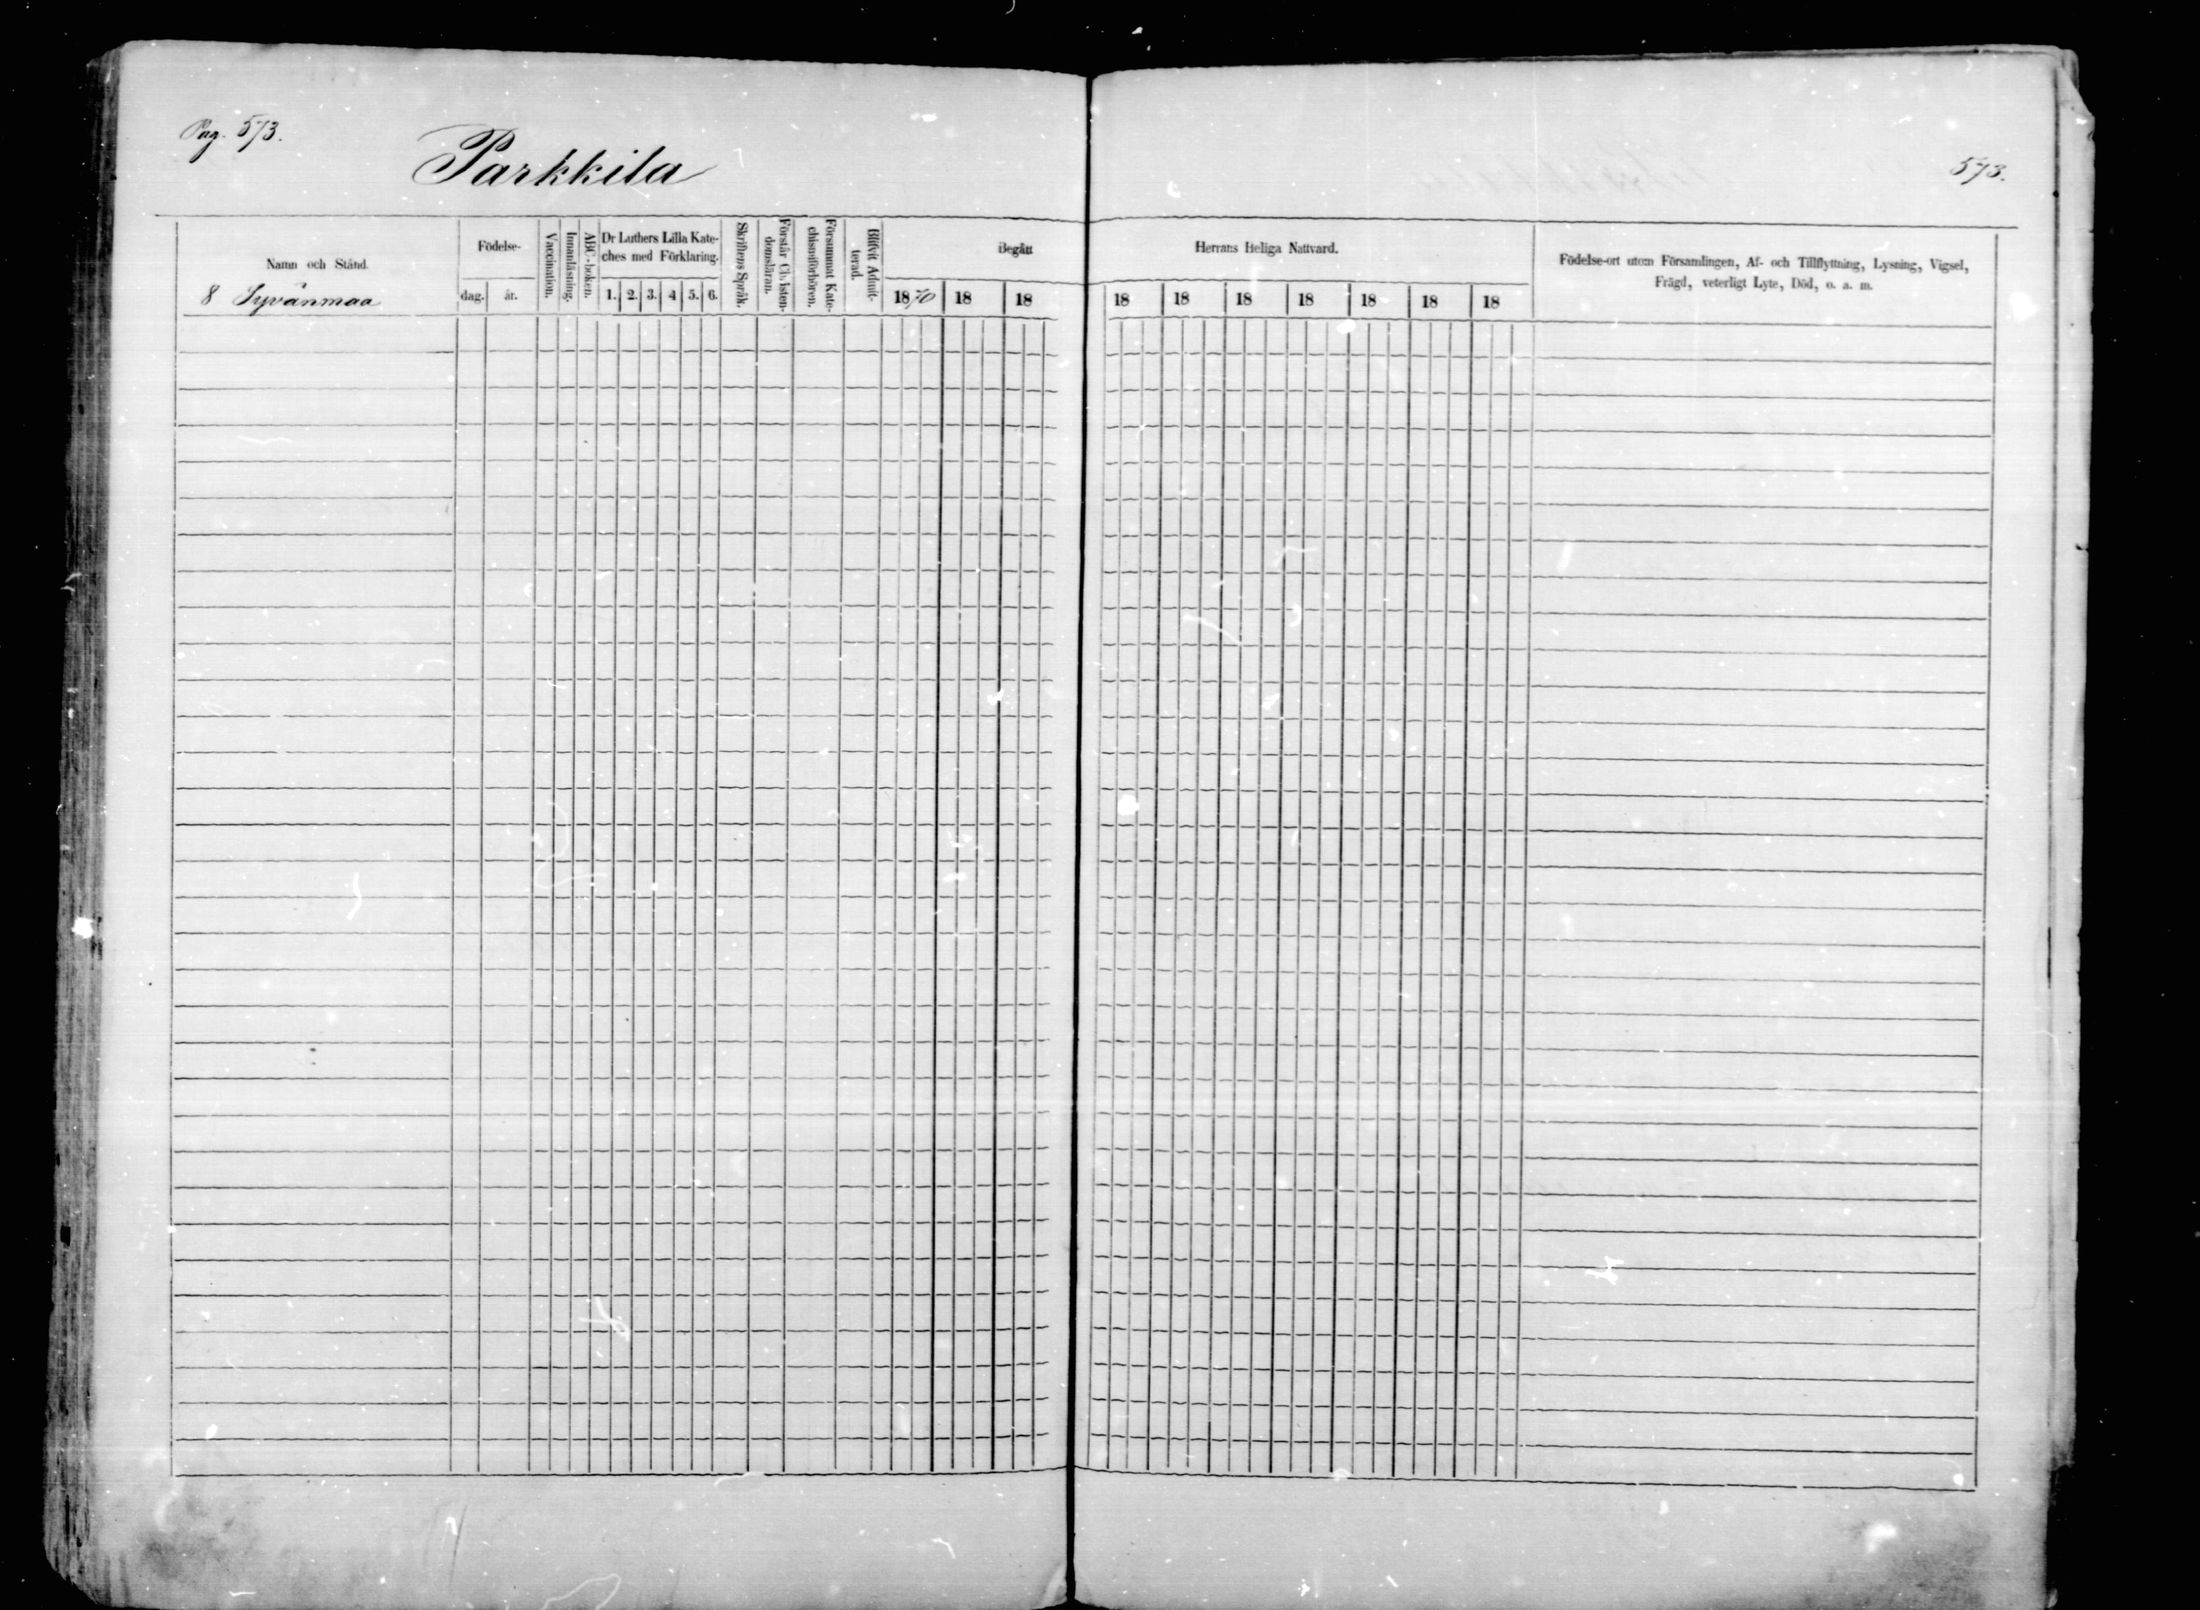 Pag. 573.
Parkkila
573.
Namn och Stånd.
8 Syvänmaa
Födelse-
dag. år.
Vaccination.
Innanläsning.
ABC-boken.
Dr Luthers Lilla Kate-
ches med Förklaring.
1. 2. 3. 4 5. 6.
Skriftens Språk.
Förstår Christen-
domsläran.
Försummat Kate-
chismiförhören.
Blifvit Admit-
terad.
Begått
1870 18 18
Herrans Heliga Nattvard.
18 18 18 18 18 18 18
Födelse-ort utom Församlingen, Af- och Tillflyttning, Lysning, Vigsel,
Frägd, veterligt Lyte, Död, o. a. m.